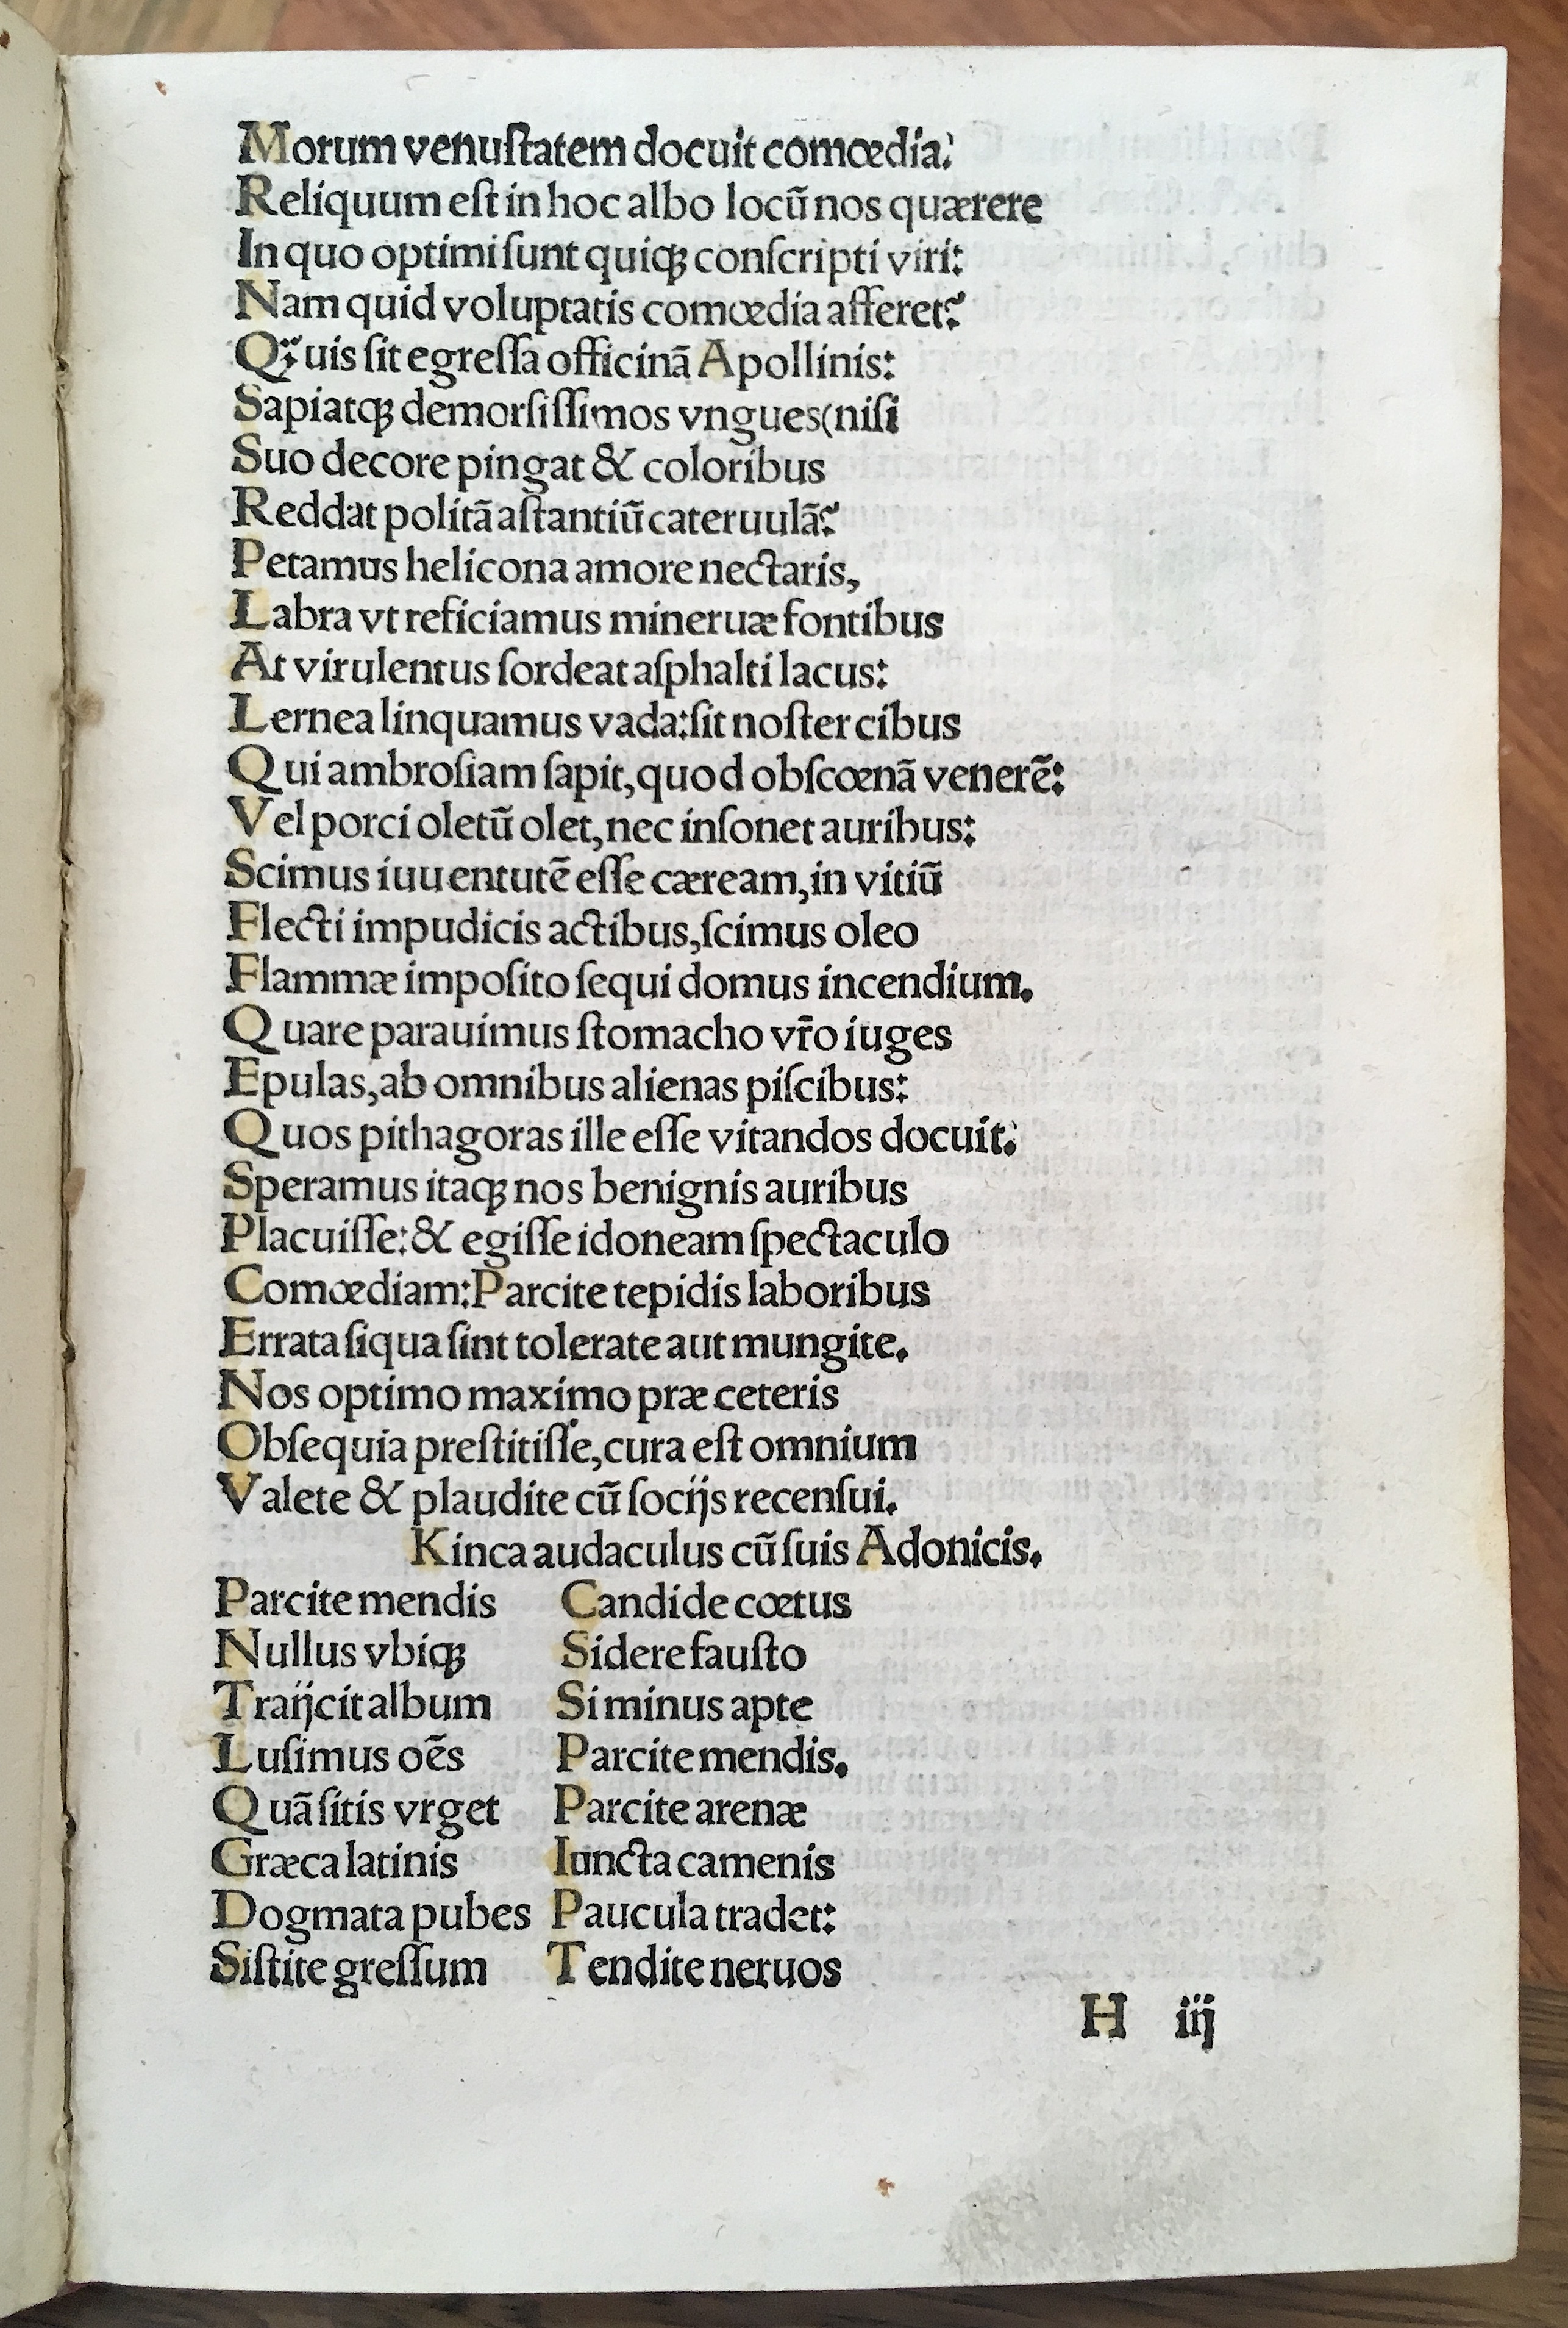 Morum venuſtatem docuit comœdia:
Reliquum eſt in hoc albo locũ nos quærere
In quo optimi ſunt quiqꝫ conſcripti viri:
Nam quid voluptatis comœdia afferet?
Qꝫuis ſit egreſſa officinã Apollinis:
Sapiatqꝫ demorſiſſimos vngues(niſi
Suo decore pingat & coloribus
Reddat politã aſtantiũ cateruulã?
Petamus helicona amore nectaris,
Labra vt reficiamus mineruæ fontibus
At virulentus ſordeat aſphalti lacus:
Lernea linquamus vada:ſit noſter cibus
Qui ambroſiam ſapit,quod obſcœnã venerẽ:
Vel porci oletũ olet,nec inſonet auribus:
Scimus iuuentutẽ eſſe cæream,in vitiũ
Flecti impudicis actibus,ſcimus oleo
Flammæ impoſito ſequi domus incendium.
Quare parauimus ſtomacho vr̃o iuges
Epulas,ab omnibus alienas piſcibus:
Quos pithagoras ille eſſe vitandos docuit:
Speramus itaqꝫ nos benignis auribus
Placuiſſe:& egiſſe idoneam ſpectaculo
Comœdiam:Parcite tepidis laboribus
Errata ſiqua ſint tolerate aut mungite.
Nos optimo maximo præ ceteris
Obſequia preſtitiſſe,cura eſt omnium
Valete & plaudite cũ ſocijs recenſui.
Kinca audaculus cũ ſuis Adonicis.
Parcite mendis Candide cœtus
Nullus vbiqꝫ Sidere fauſto
Traijcit album Si minus apte
Luſimus oẽs Parcite mendis.
Quã ſitis vrget Parcite arenæ
Græca latinis Iuncta camenis
Dogmata pubes Paucula tradet:
Siſtite greſſum Tendite neruos
H iij